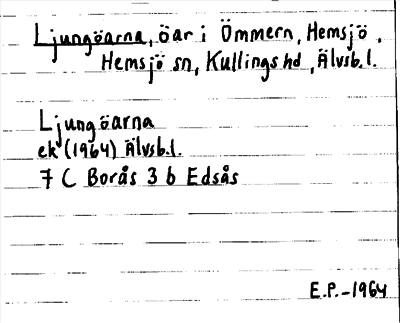 Ljungöarna, öar i Ömmern, Hemsjö,
Hemsjö sn, Kullings hd, Älvsb.l.
Ljungöarna
ek (1964) Älvsb.l.
7 C Borås 3 b Edsås
E.P.-1964